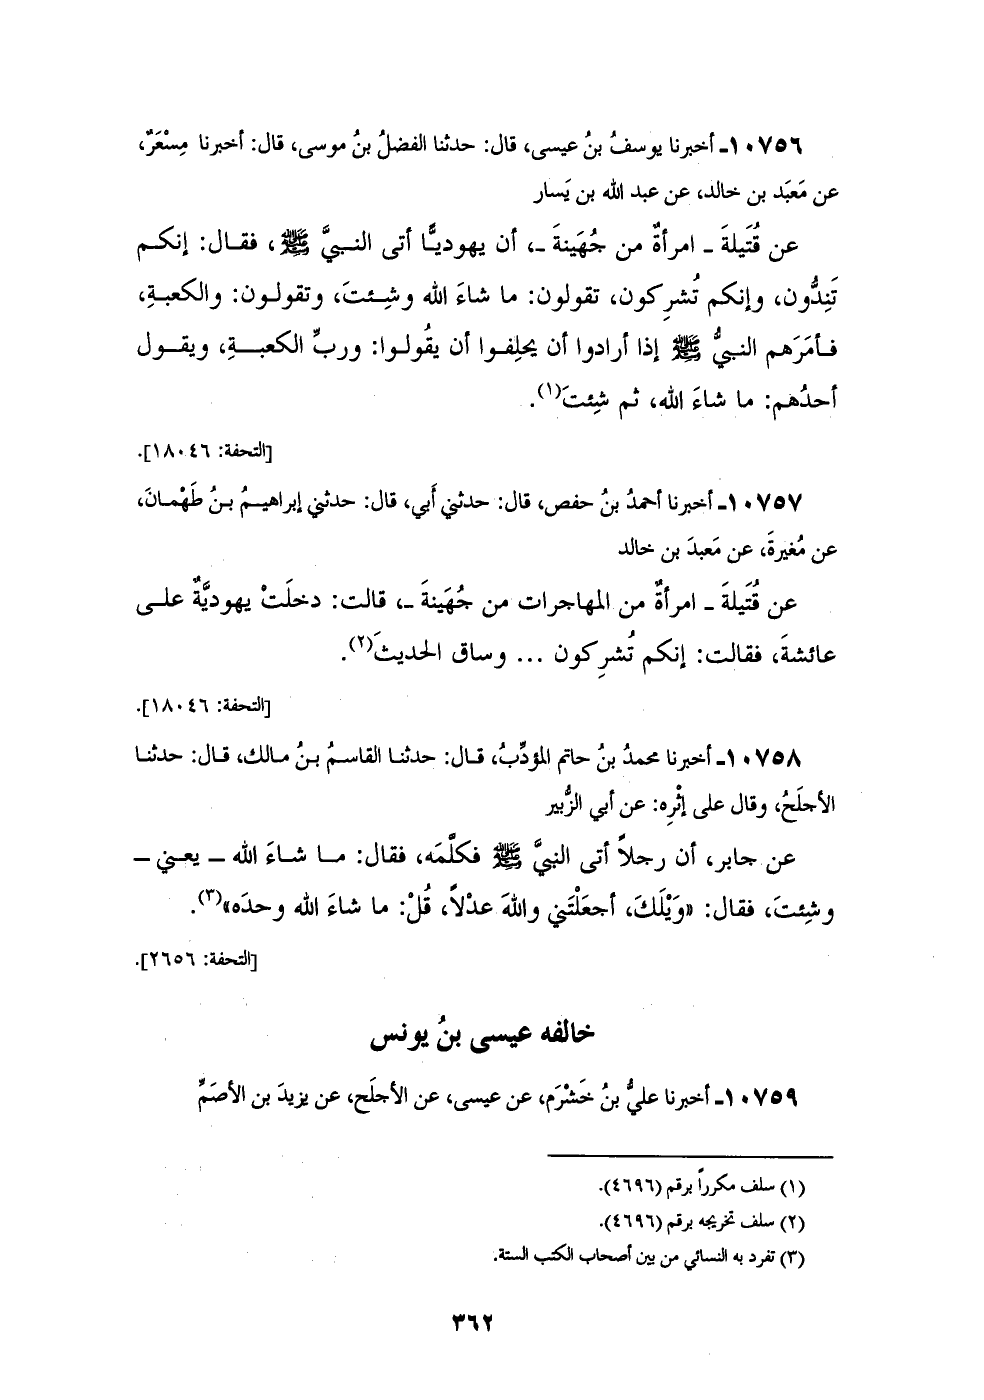 ١٠٧٥٦ـ أخبرنا يوسفُ بنُ عيسى، قال: حدثنا الفضلُ بنُ موسى، قال: أخبرنا مِسْعَرٌ،
عن مَعبَد بن خالد، عن عبد الله بن يَسار
عن قُتَيلةَ ـ امرأةٌ من جُهَينةَ ـ، أن يهوديًّا أتى النبيَّ ﷺ، فقال: إنكم
تَنِدُّون، وإنكم تُشرِكون، تقولون: ما شاءَ الله وشِئتَ، وتقولون: والكعبةِ،
فأمَرَهم النبيُّ ﷺ إذا أرادوا أن يحلِفوا أن يقُولوا: وربِّ الكعبةِ، ويقول
أحدُهم: ما شاءَ الله، ثم شِئتَ(١).
[التحفة: ١٨٠٤٦].
١٠٧٥٧ـ أخبرنا أحمدُ بنُ حفص، قال: حدثني أَبي، قال: حدثني إبراهيمُ بنُ طَهْمانَ،
عن مُغيرةَ، عن مَعبدَ بن خالد
عن قُتَيلةَ ـ امرأةٌ من المهاجرات من جُهَينةَ ـ، قالت: دخلَتْ يهوديَّةٌ على
عائشةَ، فقالت: إنكم تُشرِكون ... وساق الحديثَ(٢).
[التحفة: ١٨٠٤٦].
١٠٧٥٨ـ أخبرنا محمدُ بنُ حاتم المؤدِّبُ، قال: حدثنا القاسمُ بنُ مالك، قال: حدثنا
الأجلَحُ، وقال على إثْرِه: عن أبي الزُّبير
عن جابر، أن رجلاً أتى النبيَّ ﷺ فكلَّمَه، فقال: ما شاءَ الله ـ يعني ـ
وشِئتَ، فقال: «وَيْلَكَ، أجعَلْتَني واللهَ عدْلاً، قُلْ: ما شاءَ الله وحدَه»(٣).
[التحفة: ٢٦٥٦].
خالفه عيسى بنُ يونس
١٠٧٥٩ـ أخبرنا عليُّ بنُ خَشْرَم، عن عيسى، عن الأجلَح، عن يزيدَ بن الأصَمِّ
(١) سلف مكرراً برقم (٤٦٩٦).
(٢) سلف تخريجه برقم (٤٦٩٦).
(٣) تفرد به النسائي من بين أصحاب الكتب الستة.
٣٦٢